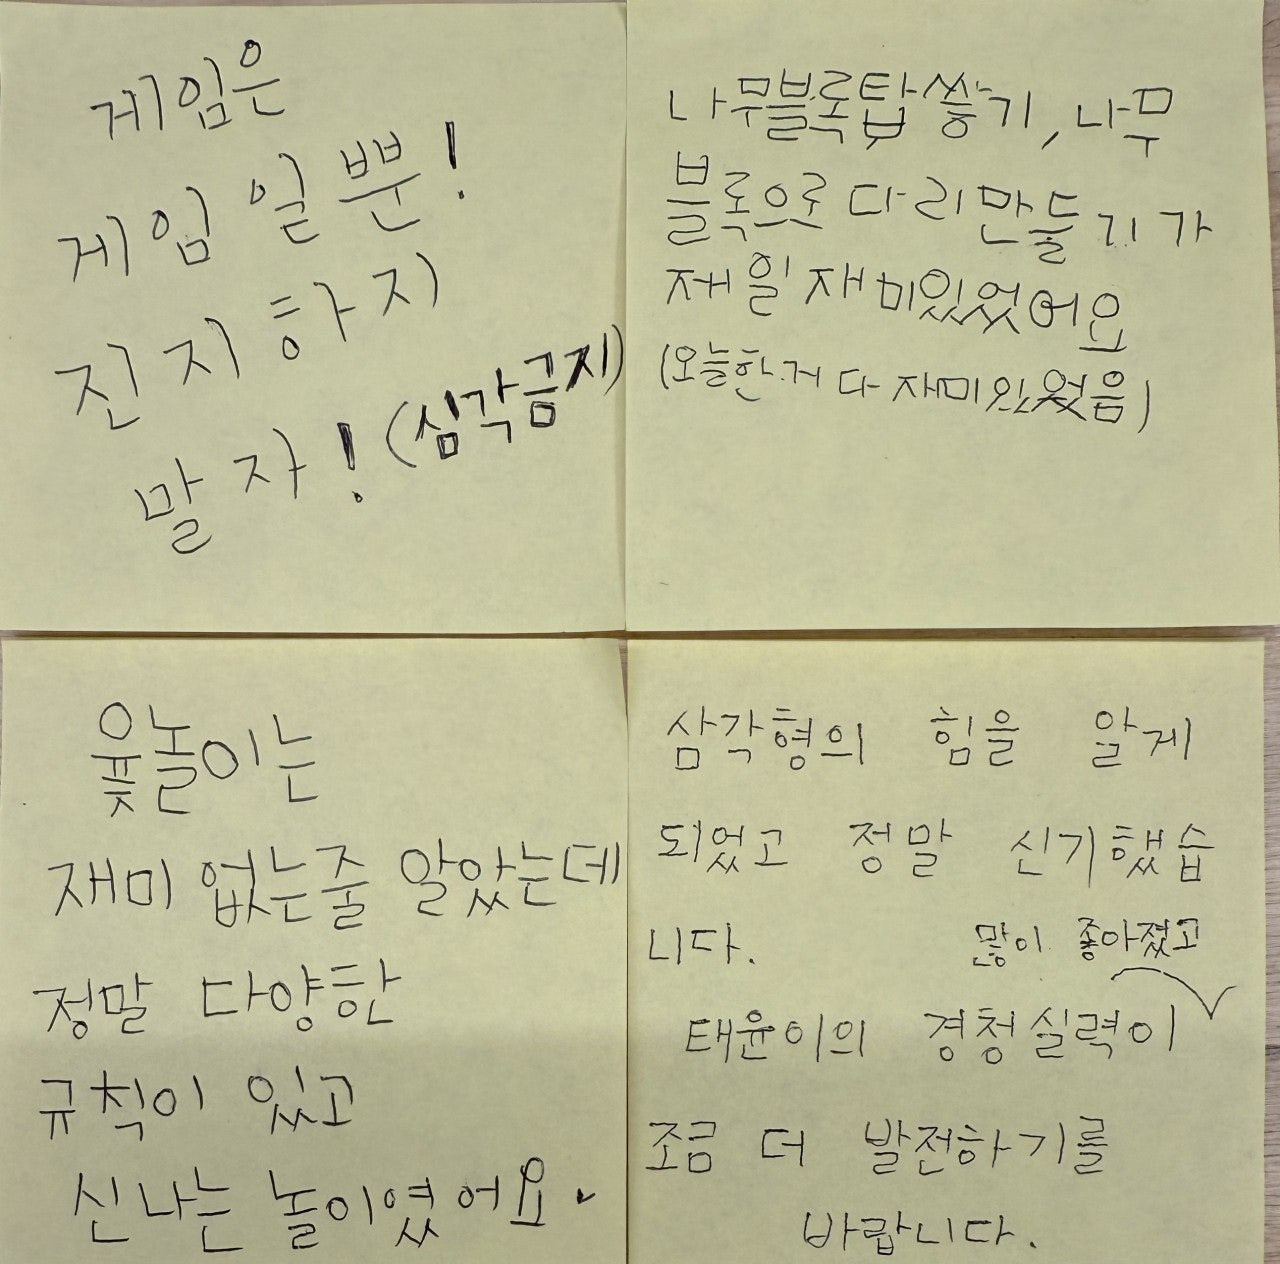 게임은
게임일뿐!
진지하지
말자! (심각금지)
나무블록탑쌓기, 나무
블록으로 다리만들기가
제일 재미있었어요
(오늘한거 다 재미있었음)
윷놀이는
재미 없는줄 알았는데
정말 다양한
규칙이 있고
신나는 놀이였어요.
삼각형의 힘을 알게
되었고 정말 신기했습
니다. 많이 좋아졌고
태윤이의 경청실력이
조금 더 발전하기를
바랍니다.